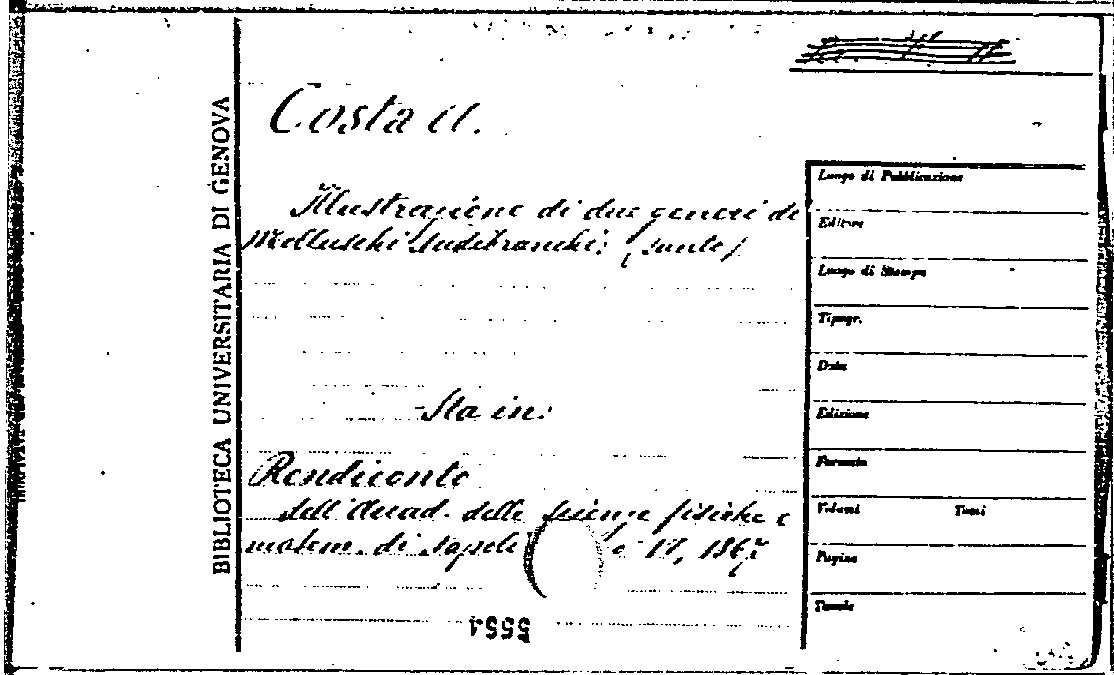 Costa A.
Illustrazione di due generi di
Molluschi Nudibranchi: (sunto)
Sta in:
Rendiconto
dell'Accad. delle scienze fisiche e
matem. di Napoli VI, 1867
BIBLIOTECA UNIVERSITARIA DI GENOVA
Luogo di Pubblicazione
Editore
Luogo di Stampa
Tipogr.
Data
Edizione
Formato
Volumi Tomi
Pagine
Tavole
5554